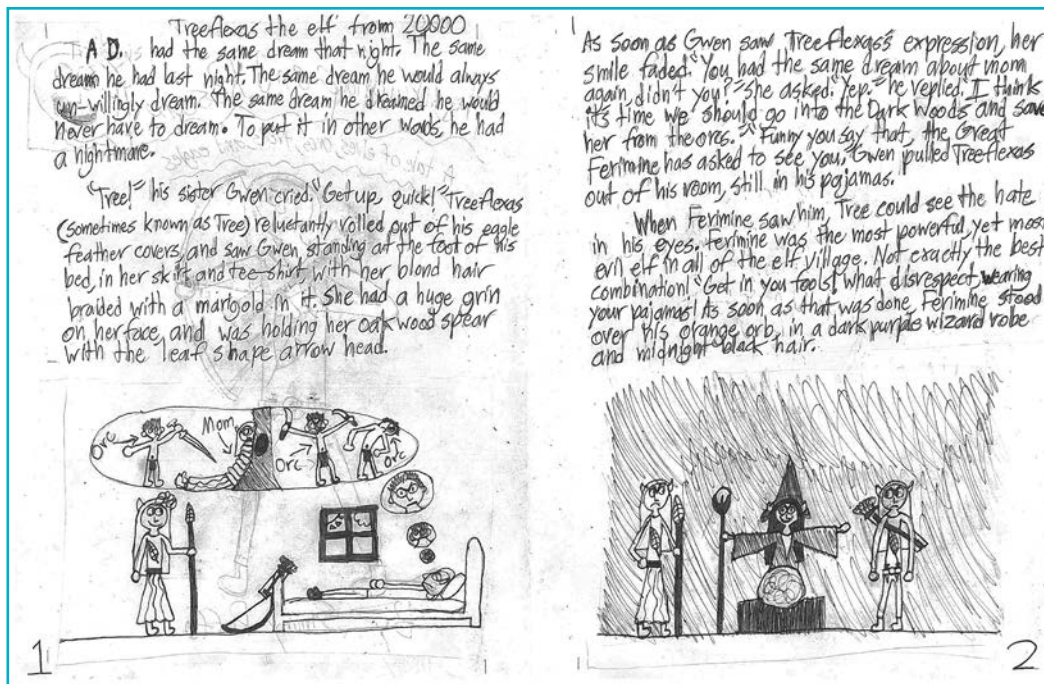 Treeflexas the elf from 20000
A D. had the same dream that night. The same
dream he had last night. The same dream he would always
un-willingly dream. The same dream he dreamed he would
never have to dream. To put it in other words, he had
a nightmare.
"Tree!" his sister Gwen cried. "Get up, quick!" Treeflexas
(sometimes known as Tree) reluctantly rolled out of his eagle
feather covers, and saw Gwen, standing at the foot of his
bed, in her skirt and tee-shirt, with her blond hair
braided with a marigold in it. She had a huge grin
on her face, and was holding her oak wood spear
with the leaf shape arrow head.
Orc
Mom
Orc
Orc
1
As soon as Gwen saw Treeflexas's expression, her
smile faded. "You had the same dream about mom
again didn't you?" she asked. "Yep." he replied. "I think
it's time we should go into the Dark Woods and save
her from the orcs." "Funny you say that, the Great
Ferimine has asked to see you." Gwen pulled Treeflexas
out of his room, still in his pajamas.
When Ferimine saw him, Tree could see the hate
in his eyes. Ferimine was the most powerful, yet most
evil elf in all of the elf village. Not exactly the best
combination! "Get in you fools! What disrespect, wearing
your pajamas! As soon as that was done, Ferimine stood
over his orange orb, in a dark purple wizard robe
and midnight black hair.
2